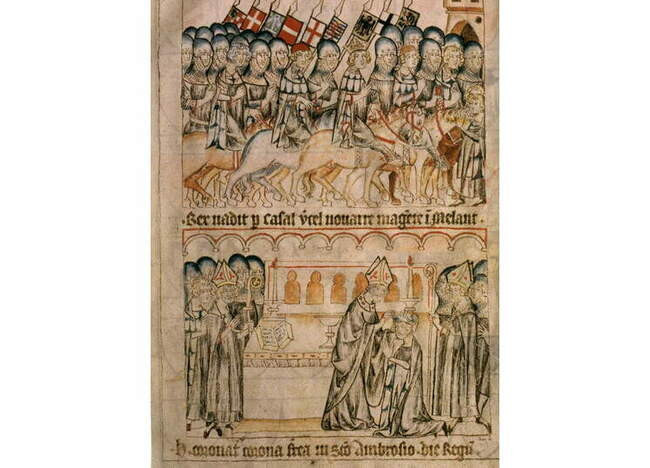 Rex vadit p casal v'cel novarre magēte i Melant.
h coronat' corona ferea in sco Ambrosio die Regū